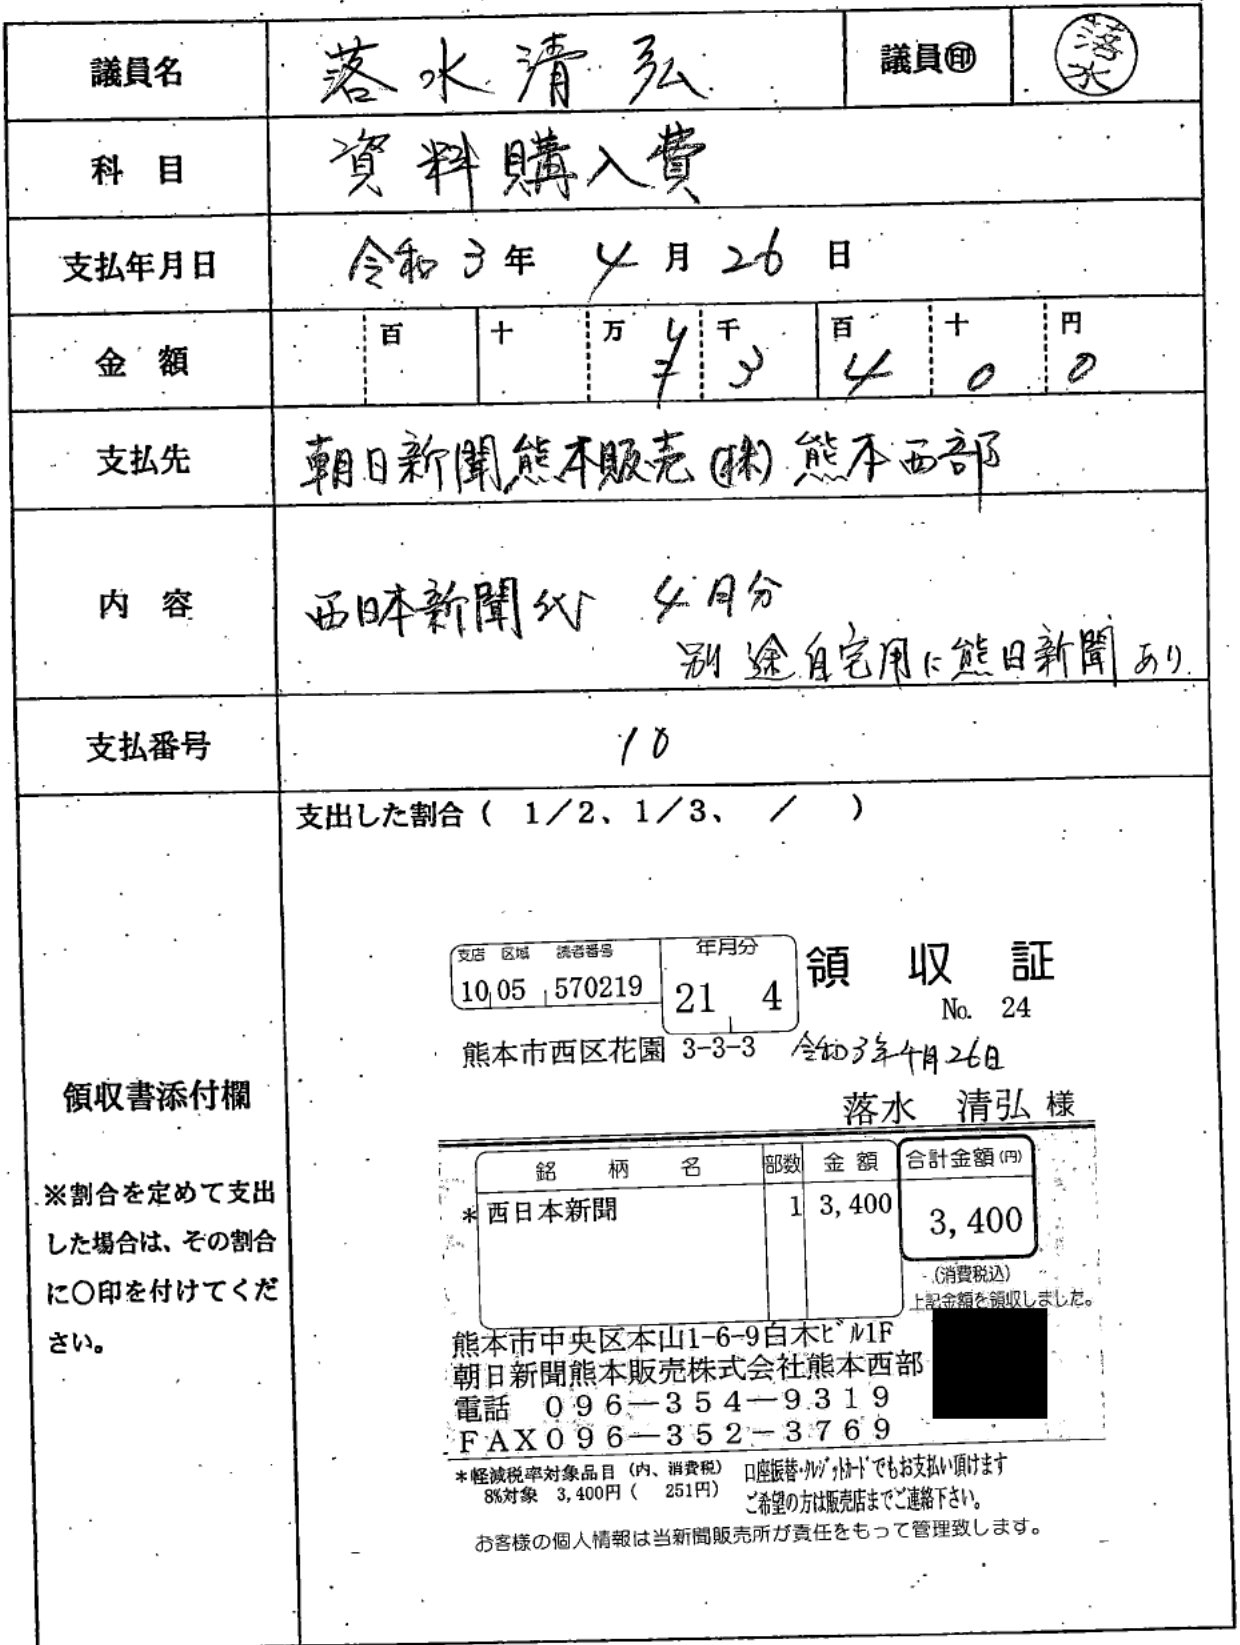 議員名 落水清弘 議員㊞ 落水
科目 資料購入費
支払年月日 令和3年 4月26日
金額 百 十 万 ¥ 千 3 百 4 十 0 円 0
支払先 朝日新聞熊本販売(株)熊本西部
内容 西日本新聞代 4月分
別途自宅用に熊日新聞あり
支払番号 10
支出した割合( 1/2、1/3、 / )
領収書添付欄
※割合を定めて支出
した場合は、その割合
に○印を付けてくだ
さい。
支店 区域 読者番号 年月分
10 05 570219 21 4
領収証
No. 24
熊本市西区花園 3-3-3 令和3年4月26日
落水 清弘 様
銘柄名 部数 金額 合計金額(円)
*西日本新聞 1 3,400 3,400
(消費税込)
上記金額を領収しました。
熊本市中央区本山1-6-9白木ビル1F
朝日新聞熊本販売株式会社熊本西部
電話 096-354-9319
FAX096-352-3769
*軽減税率対象品目(内、消費税)
8%対象 3,400円( 251円)
口座振替・クレジットカードでもお支払い頂けます
ご希望の方は販売店までご連絡下さい。
お客様の個人情報は当新聞販売所が責任をもって管理致します。